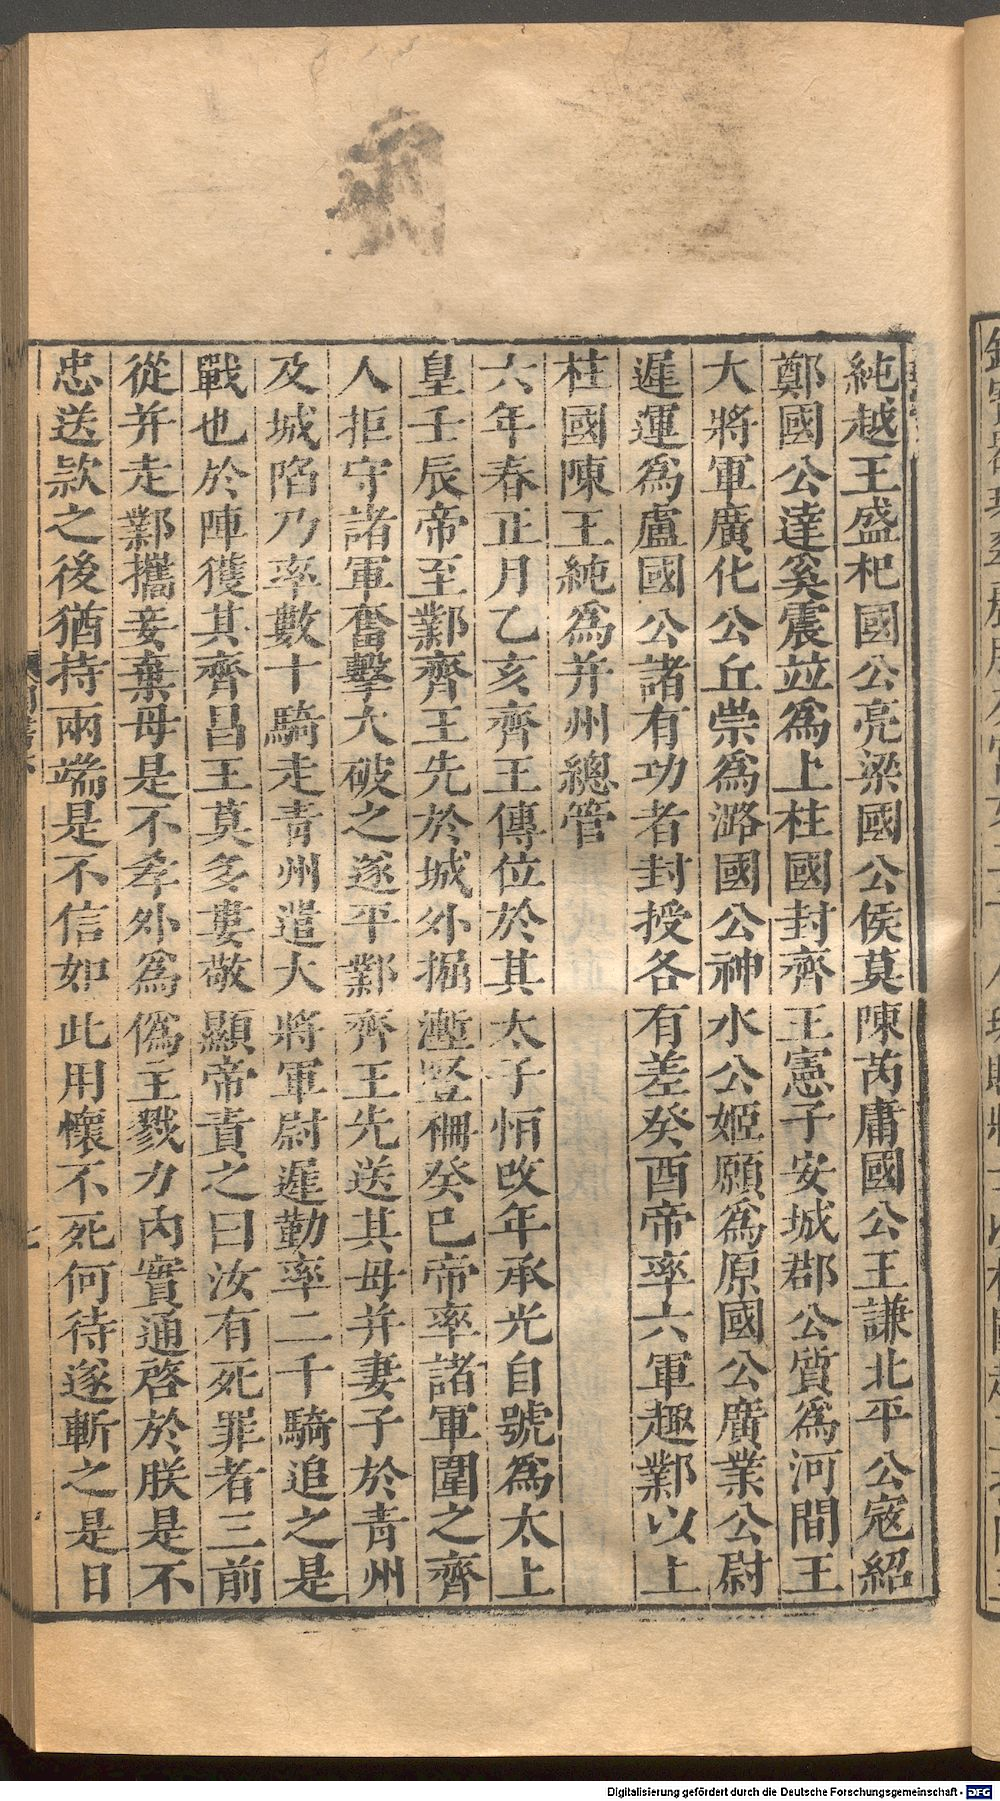 純越王盛杞國公亮梁國公侯莫陳芮庸國公王謙北平公寇紹
鄭國公達奚震竝爲上柱國封齊王憲子安城郡公質爲河間王
大將軍廣化公丘崇爲潞國公神水公姬願爲原國公廣業公尉
遲運爲盧國公諸有功者封授各有差癸酉帝率六軍趣鄴以上
柱國陳王純爲并州總管
六年春正月乙亥齊王傳位於其太子恒改年承光自號爲太上
皇壬辰帝至鄴齊王先於城外掘塹竪柵癸巳帝率諸軍圍之齊
人拒守諸軍奮擊大破之遂平鄴齊王先送其母并妻子於青州
及城陷乃率數十騎走青州遣大將軍尉遲勤率二千騎追之是
戰也於陣獲其齊昌王莫多婁敬顯帝責之曰汝有死罪者三前
從并走鄴攜妾棄母是不孝外爲僞主戮力內實通啓於朕是不
忠送款之後猶持兩端是不信如此用懷不死何待遂斬之是日
Digitalisierung gefördert durch die Deutsche Forschungsgemeinschaft - DFG